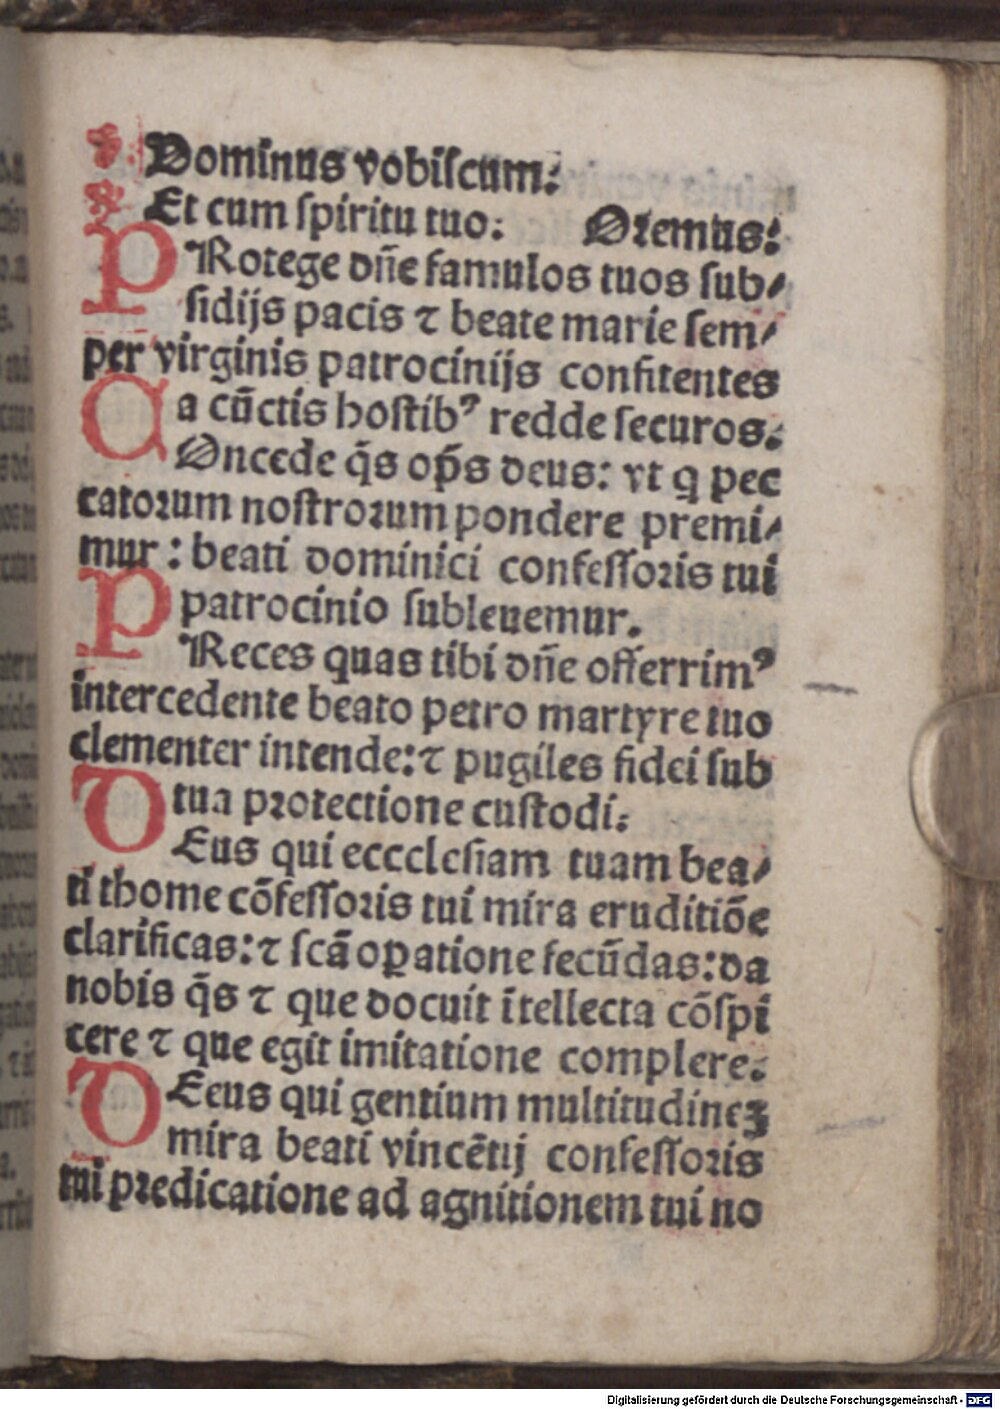 ℣ Dominus vobiſcum:
℟ Et cum ſpiritu tuo: Oꝛemus:
PRotege dn̄e famulos tuos ſub⸗
ſidijs pacis ⁊ beate marie ſem⸗
per virginis patrocinijs confitentes
a cūctis hoſtibꝰ redde ſecuros:
COncede q̄s op̄s deus: vt q pec
catoꝛum noſtroꝛum pondere premi⸗
mur: beati dominici confeſſoꝛis tui
patrocinio ſubleuemur.
PReces quas tibi dn̄e offerrimꝰ
intercedente beato petro martyre tuo
clementer intende: ⁊ pugiles fidei ſub
tua pꝛotectione cuſtodi:
DEus qui eccclesiam tuam bea⸗
ti thome cōfeſſoꝛis tui mira eruditiōe
clarificas: ⁊ ſcā oꝑatione fecūdas: da
nobis q̄s ⁊ que docuit ītellecta cōſpi
cere ⁊ que egit imitatione complere:
DEeus qui gentium multitudineꝫ
mira beati vincētij confeſſoꝛis
tui pꝛedicatione ad agnitionem tui no
Digitalisierung gefördert durch die Deutsche Forschungsgemeinschaft - DFG